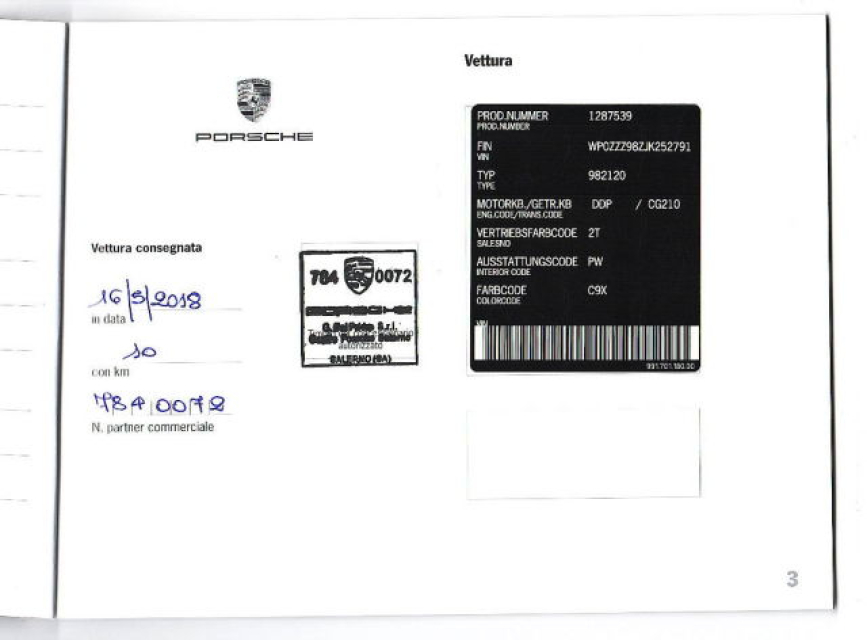 PORSCHE
Vettura consegnata
16/5/2018
in data
10
con km
784 0072
N. partner commerciale
784 0072
autorizzato
SALERNO (SA)
Vettura
PROD.NUMMER 1287539
PROD.NUMBER
FIN WP0ZZZ98ZJK252791
VIN
TYP 982120
TYPE
MOTORKB./GETR.KB DDP / CG210
ENG.CODE/TRANS.CODE
VERTRIEBSFARBCODE 2T
SALESNO
AUSSTATTUNGSCODE PW
INTERIOR CODE
FARBCODE C9X
COLORCODE
991.701.180.00
3